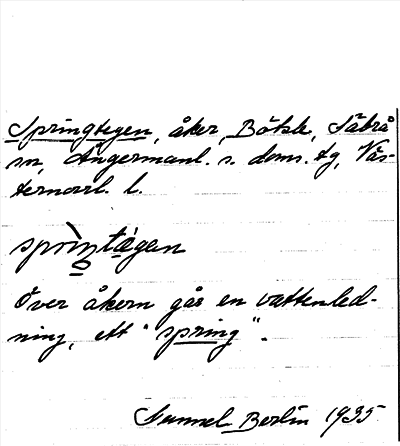 Springtegen, åker, Bölsle, Säbrå
sn, Ångermanl. s. doms. tg, Väs-
ternorrl. l.
sprìŋtégen
Över åkern går en vattenled-
ning, ett "spring".
Gunnel Berlin 1935.